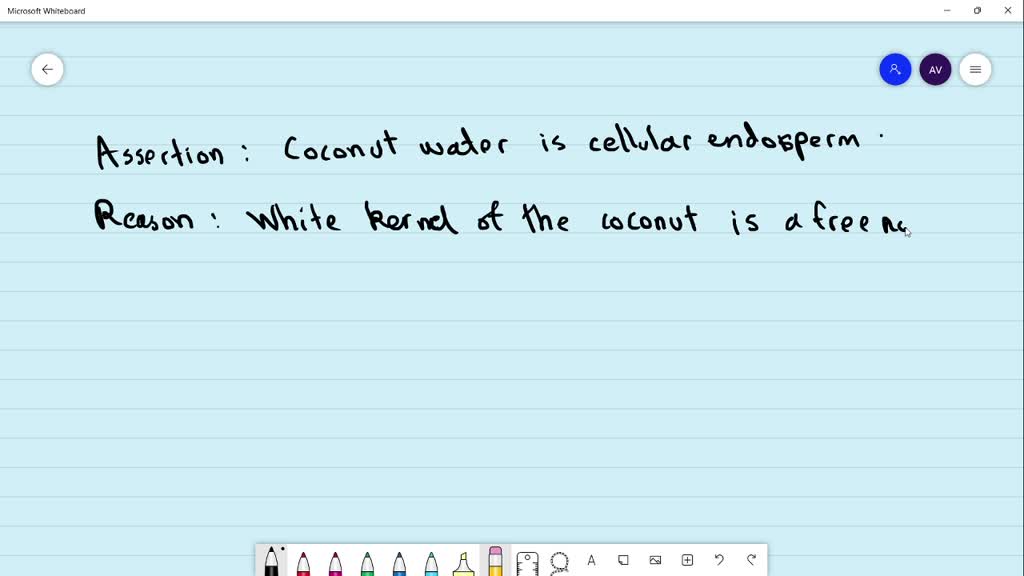 Microsoft Whiteboard
AV
Assertion : Coconut water is cellular endosperm .
Reason : White kernel of the coconut is a free
A